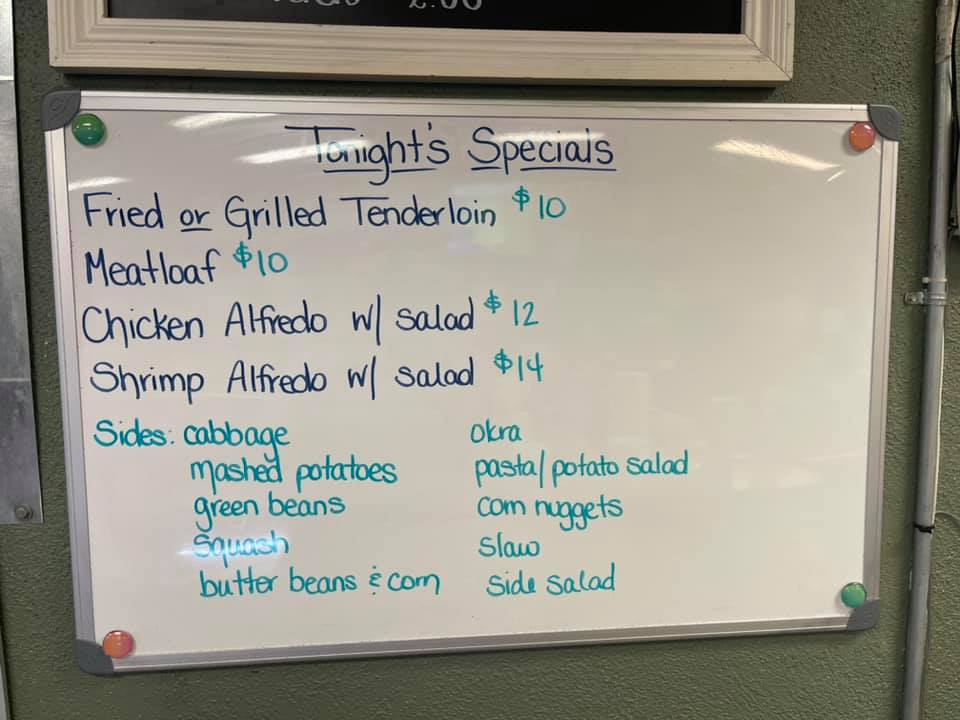 2.00
Tonight's Specials
Fried or Grilled Tenderloin $10
Meatloaf $10
Chicken Alfredo w/ salad $12
Shrimp Alfredo w/ salad $14
Sides: cabbage okra
mashed potatoes pasta/potato salad
green beans corn nuggets
squash slaw
butter beans & corn side salad